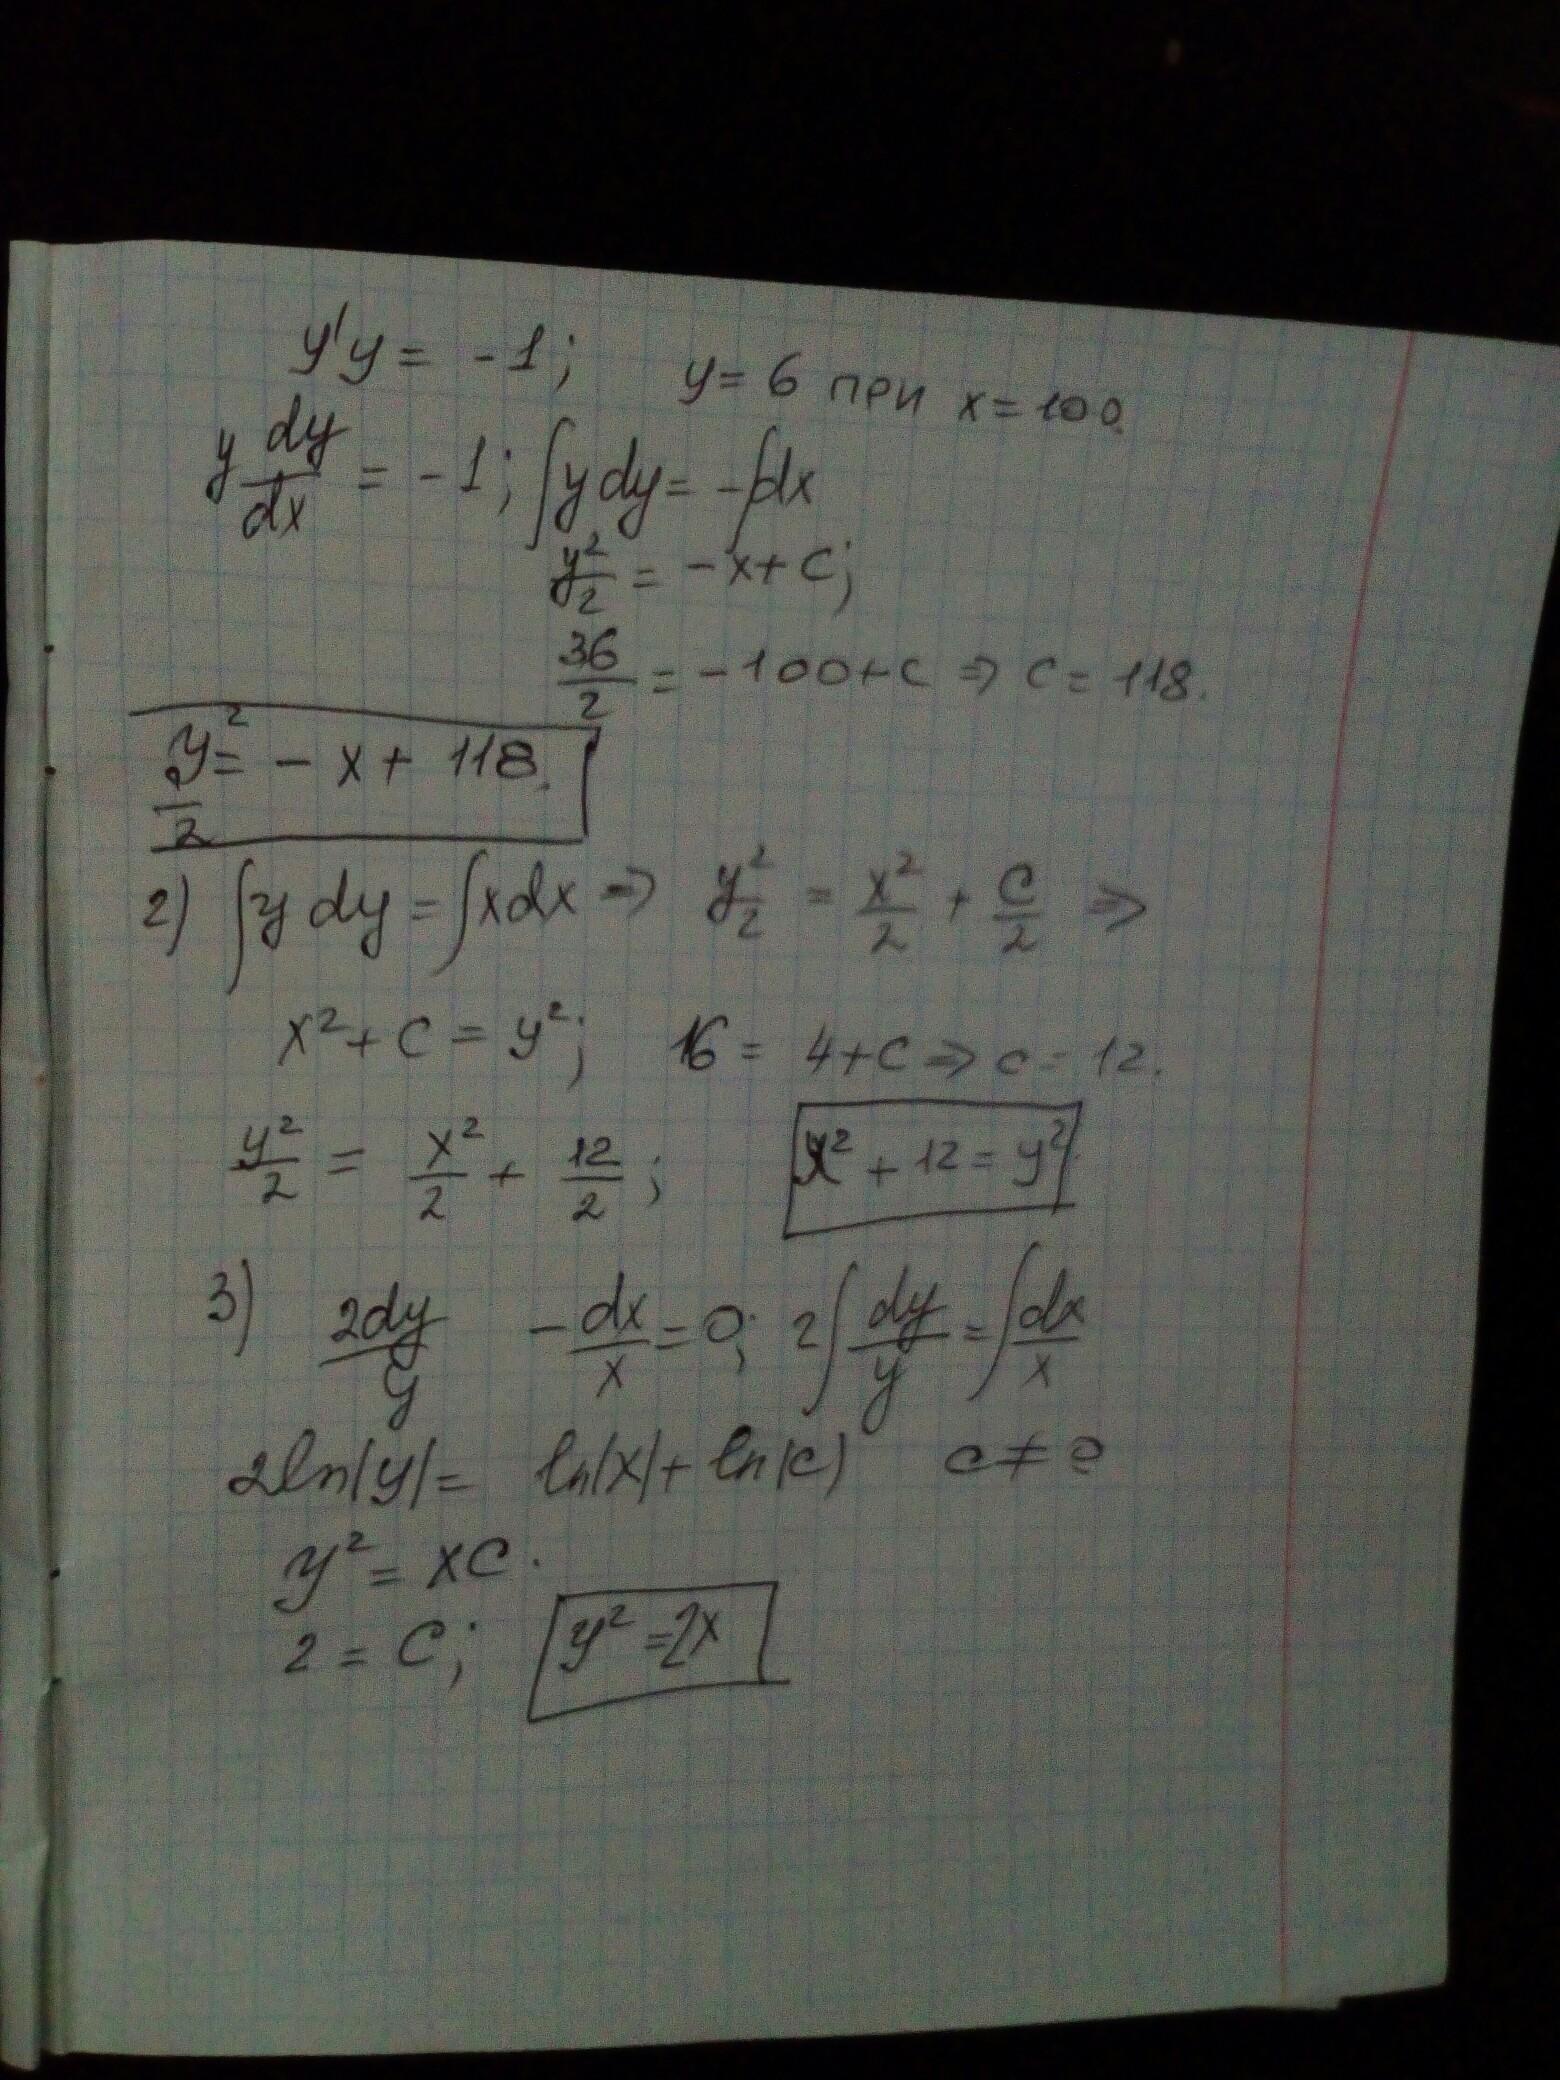 y'y = -1; y = 6 при x = 100.
y dy/dx = -1; ∫y dy = -∫dx
y²/2 = -x + c;
36/2 = -100 + c ⇒ c = 118.
y²/2 = -x + 118.
2) ∫y dy = ∫x dx ⇒ y²/2 = x²/2 + C/2 ⇒
x² + c = y²; 16 = 4 + c ⇒ c = 12.
y²/2 = x²/2 + 12/2; x² + 12 = y²
3) 2dy/y - dx/x = 0; 2∫dy/y = ∫dx/x
2ln|y| = ln|x| + ln|c| c ≠ 0
y² = xc.
2 = C; y² = 2x